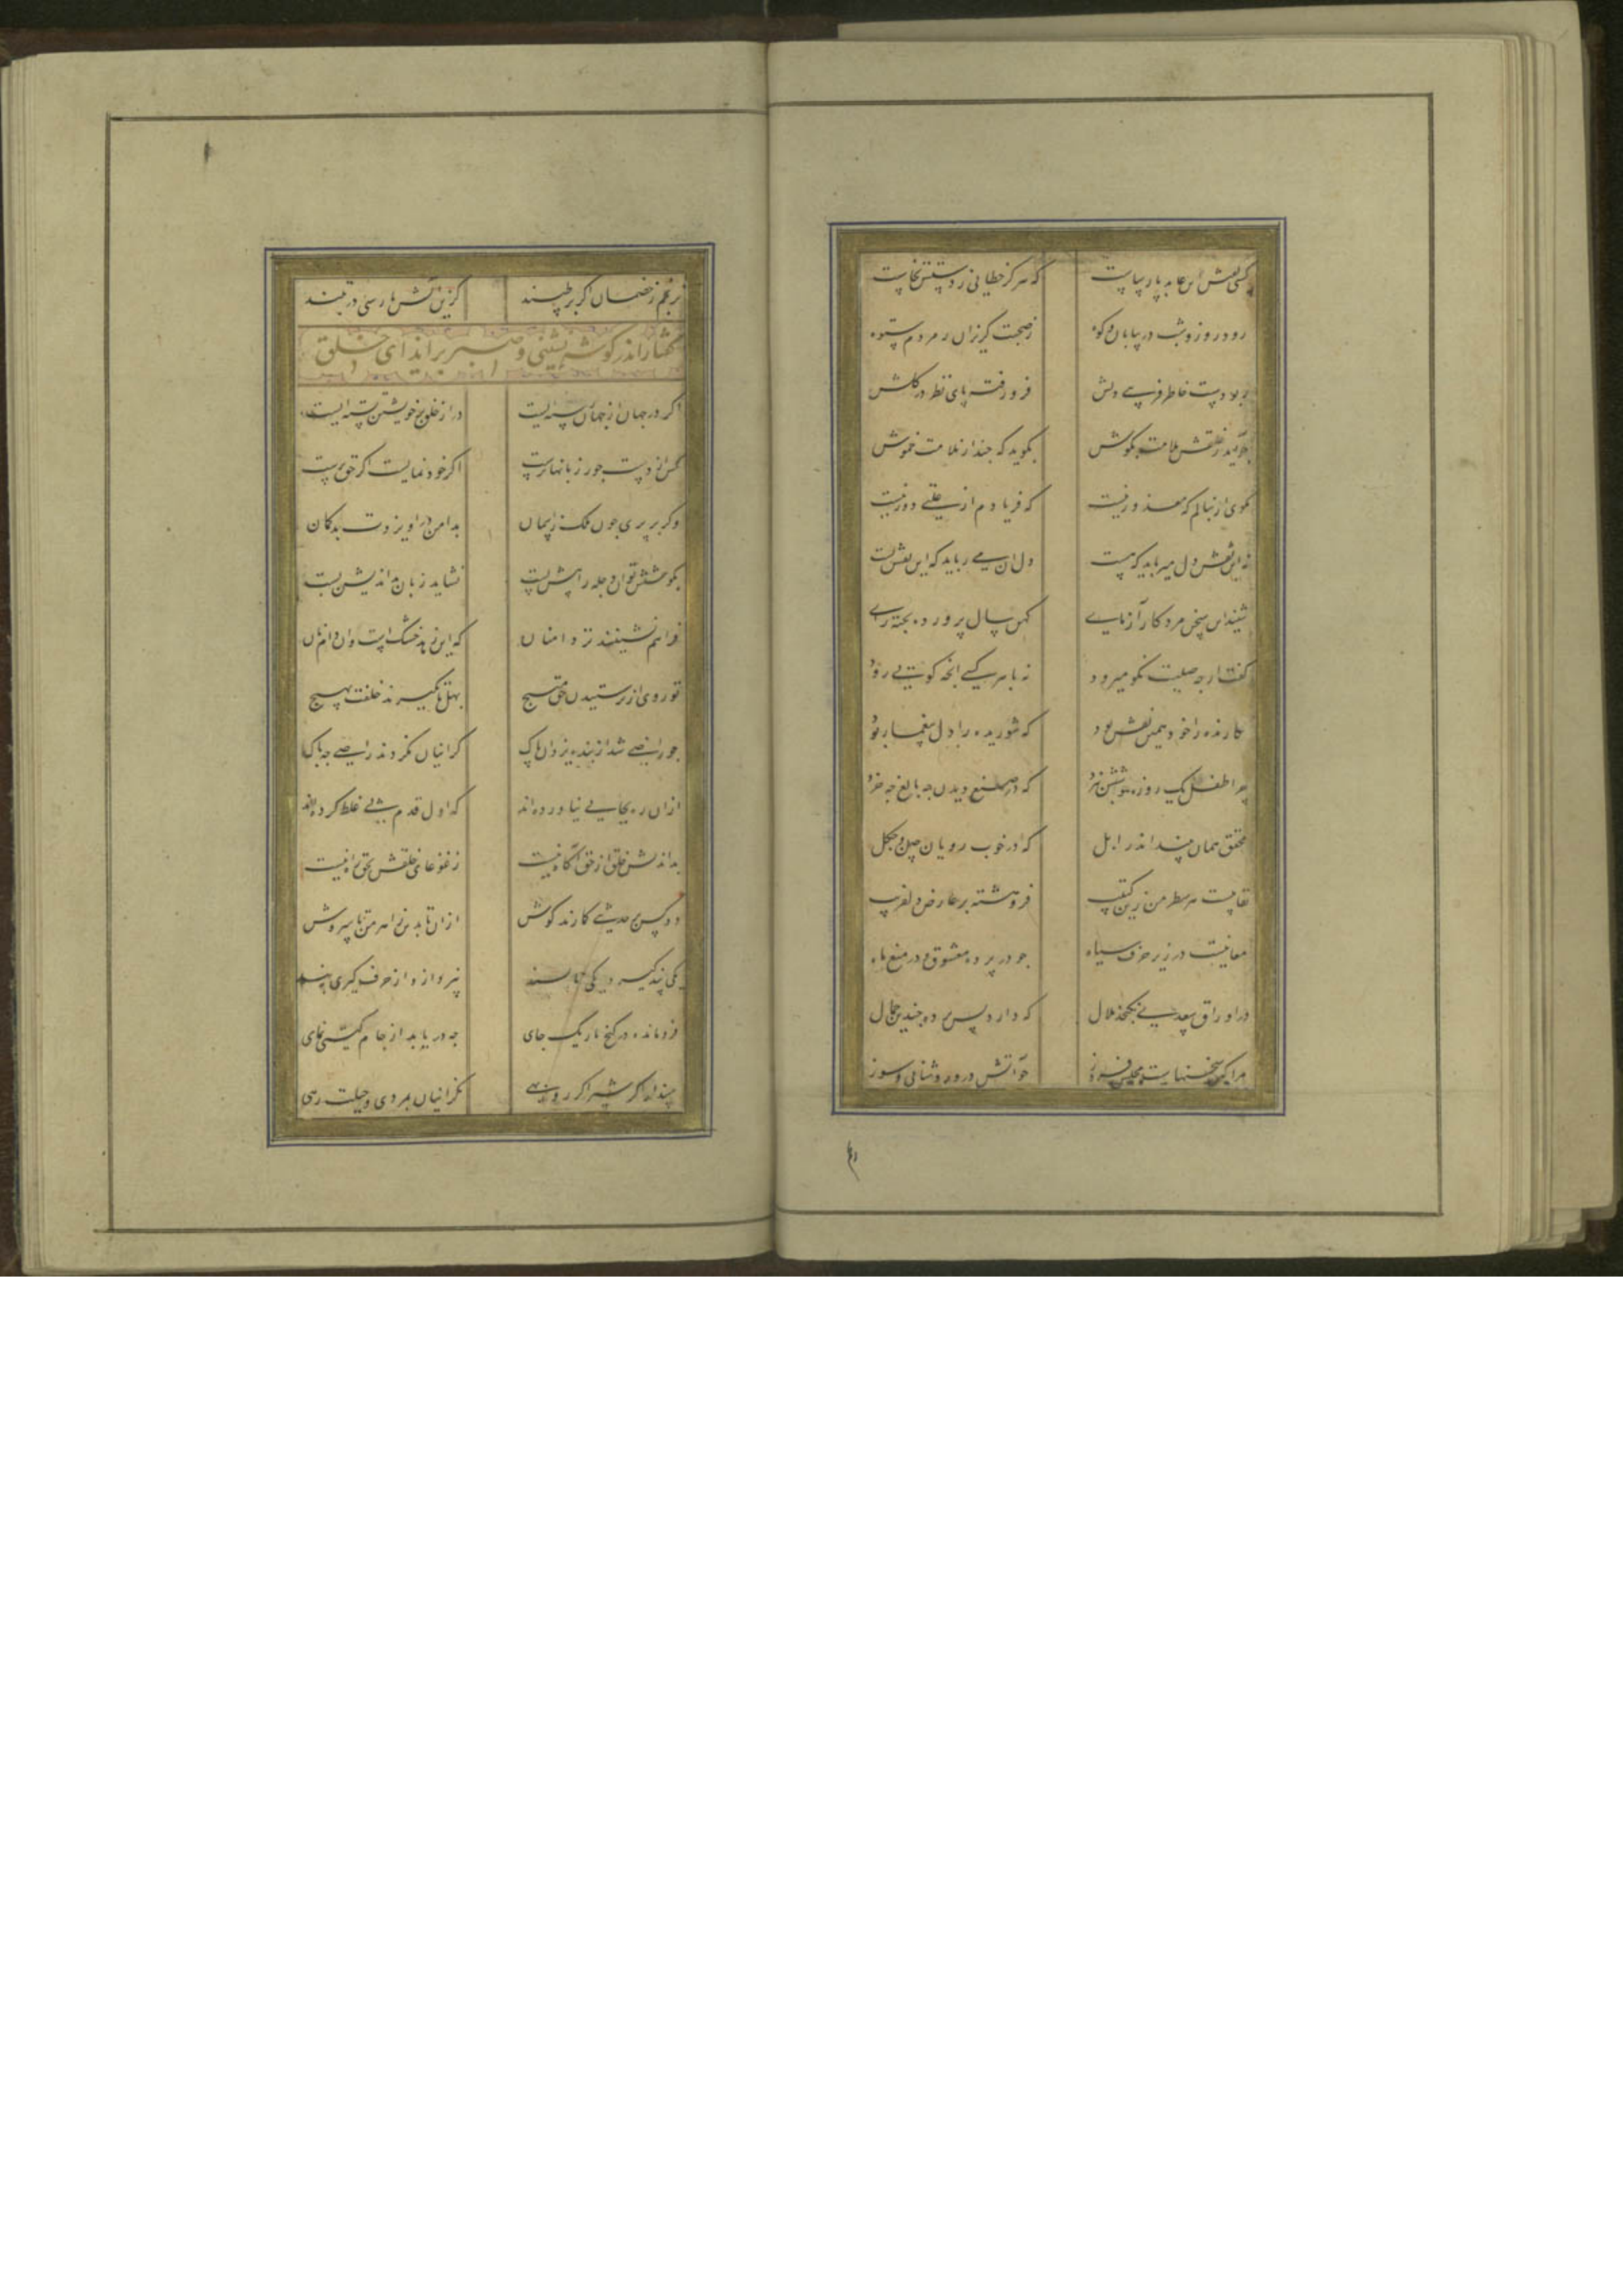 کسی گفتش این عابد پارساست که هرگز خطایی ز دستش نخاست
رود روز و شب در بیابان و کوه ز صحبت گریزان ز مردم ستوه
ربودست خاطر فریبی دلش فرو رفته پای نظر در گلش
چو آید ز خلقش ملامت بگوش بگوید که چند از ملامت خموش
مگوی ار بنالم که معذور نیست که فریادم از علتی دور نیست
نه این نقش دل میرباید که هست دل آن می رباید که این نقش بست
شنید این سخن مرد کار آزمای کهن سال پرورده پخته رای
بگفت ار چه صیت نکو میرود نه با هر کسی انچه گویی رود
نگارنده را خود همین نقش بود که شوریده را دل بیغما ربود
چرا طفل یک روزه هوشش نبرد که در صنع دیدن چه بالغ چه خرد
محقق همان بیند اندر ابل که در خوب رویان چین و چگل
نقابیست هر سطر من زین کتیب فرو هشته بر عارض دلفریب
معانیست در زیر حرف سیاه چو در پرده معشوق و در میغ ماه
در اوراق سعدی نگنجد ملال که دارد پس پرده چندین جمال
مرا کین سخنهاست مجلس فروز چو آتش درو روشنایی و سوز
نرنجم ز خصمان اگر بر طپند کزین آتش پارسی در تبند
گفتار اندر گوشه نشینی و صبر بر ایذای خلق
اگر در جهان از جهان رسته ایست در از خلق بر خویشتن بسته ایست
کس از دست جور زبانها نرست اگر خود نمایست اگر حق پرست
وگر بر پری چون ملک ز آسمان بدامن در آویزدت بدگمان
بکوشش توان دجله را پیش بست نشاید زبان بداندیش بست
فراهم نشینند تر دامنان که این زهد خشکست و آن دام نان
تو روی از پرستیدن حق مپیچ بهل تا نگیرند خلقت بهیچ
چو راضی شد از بنده یزدان پاک گر اینان نگردند راضی چه باک
از آن ره بجایی نیاورده اند که اول قدم پی غلط کرده اند
بداندیش خلق از حق آگاه نیست ز غوغای خلقش بحق راه نیست
دو کس بر حدیثی گمارند گوش از آن تا بدین ز اهرمن تا سروش
یکی پند گیرد دگر ناپسند نپردازد از حرف گیری بپند
فرو مانده در کنج تاریک جای چه دریابد از جام گیتی نمای
مپندار اگر شیر اگر روبهی کز اینان بمردی و حیلت رهی